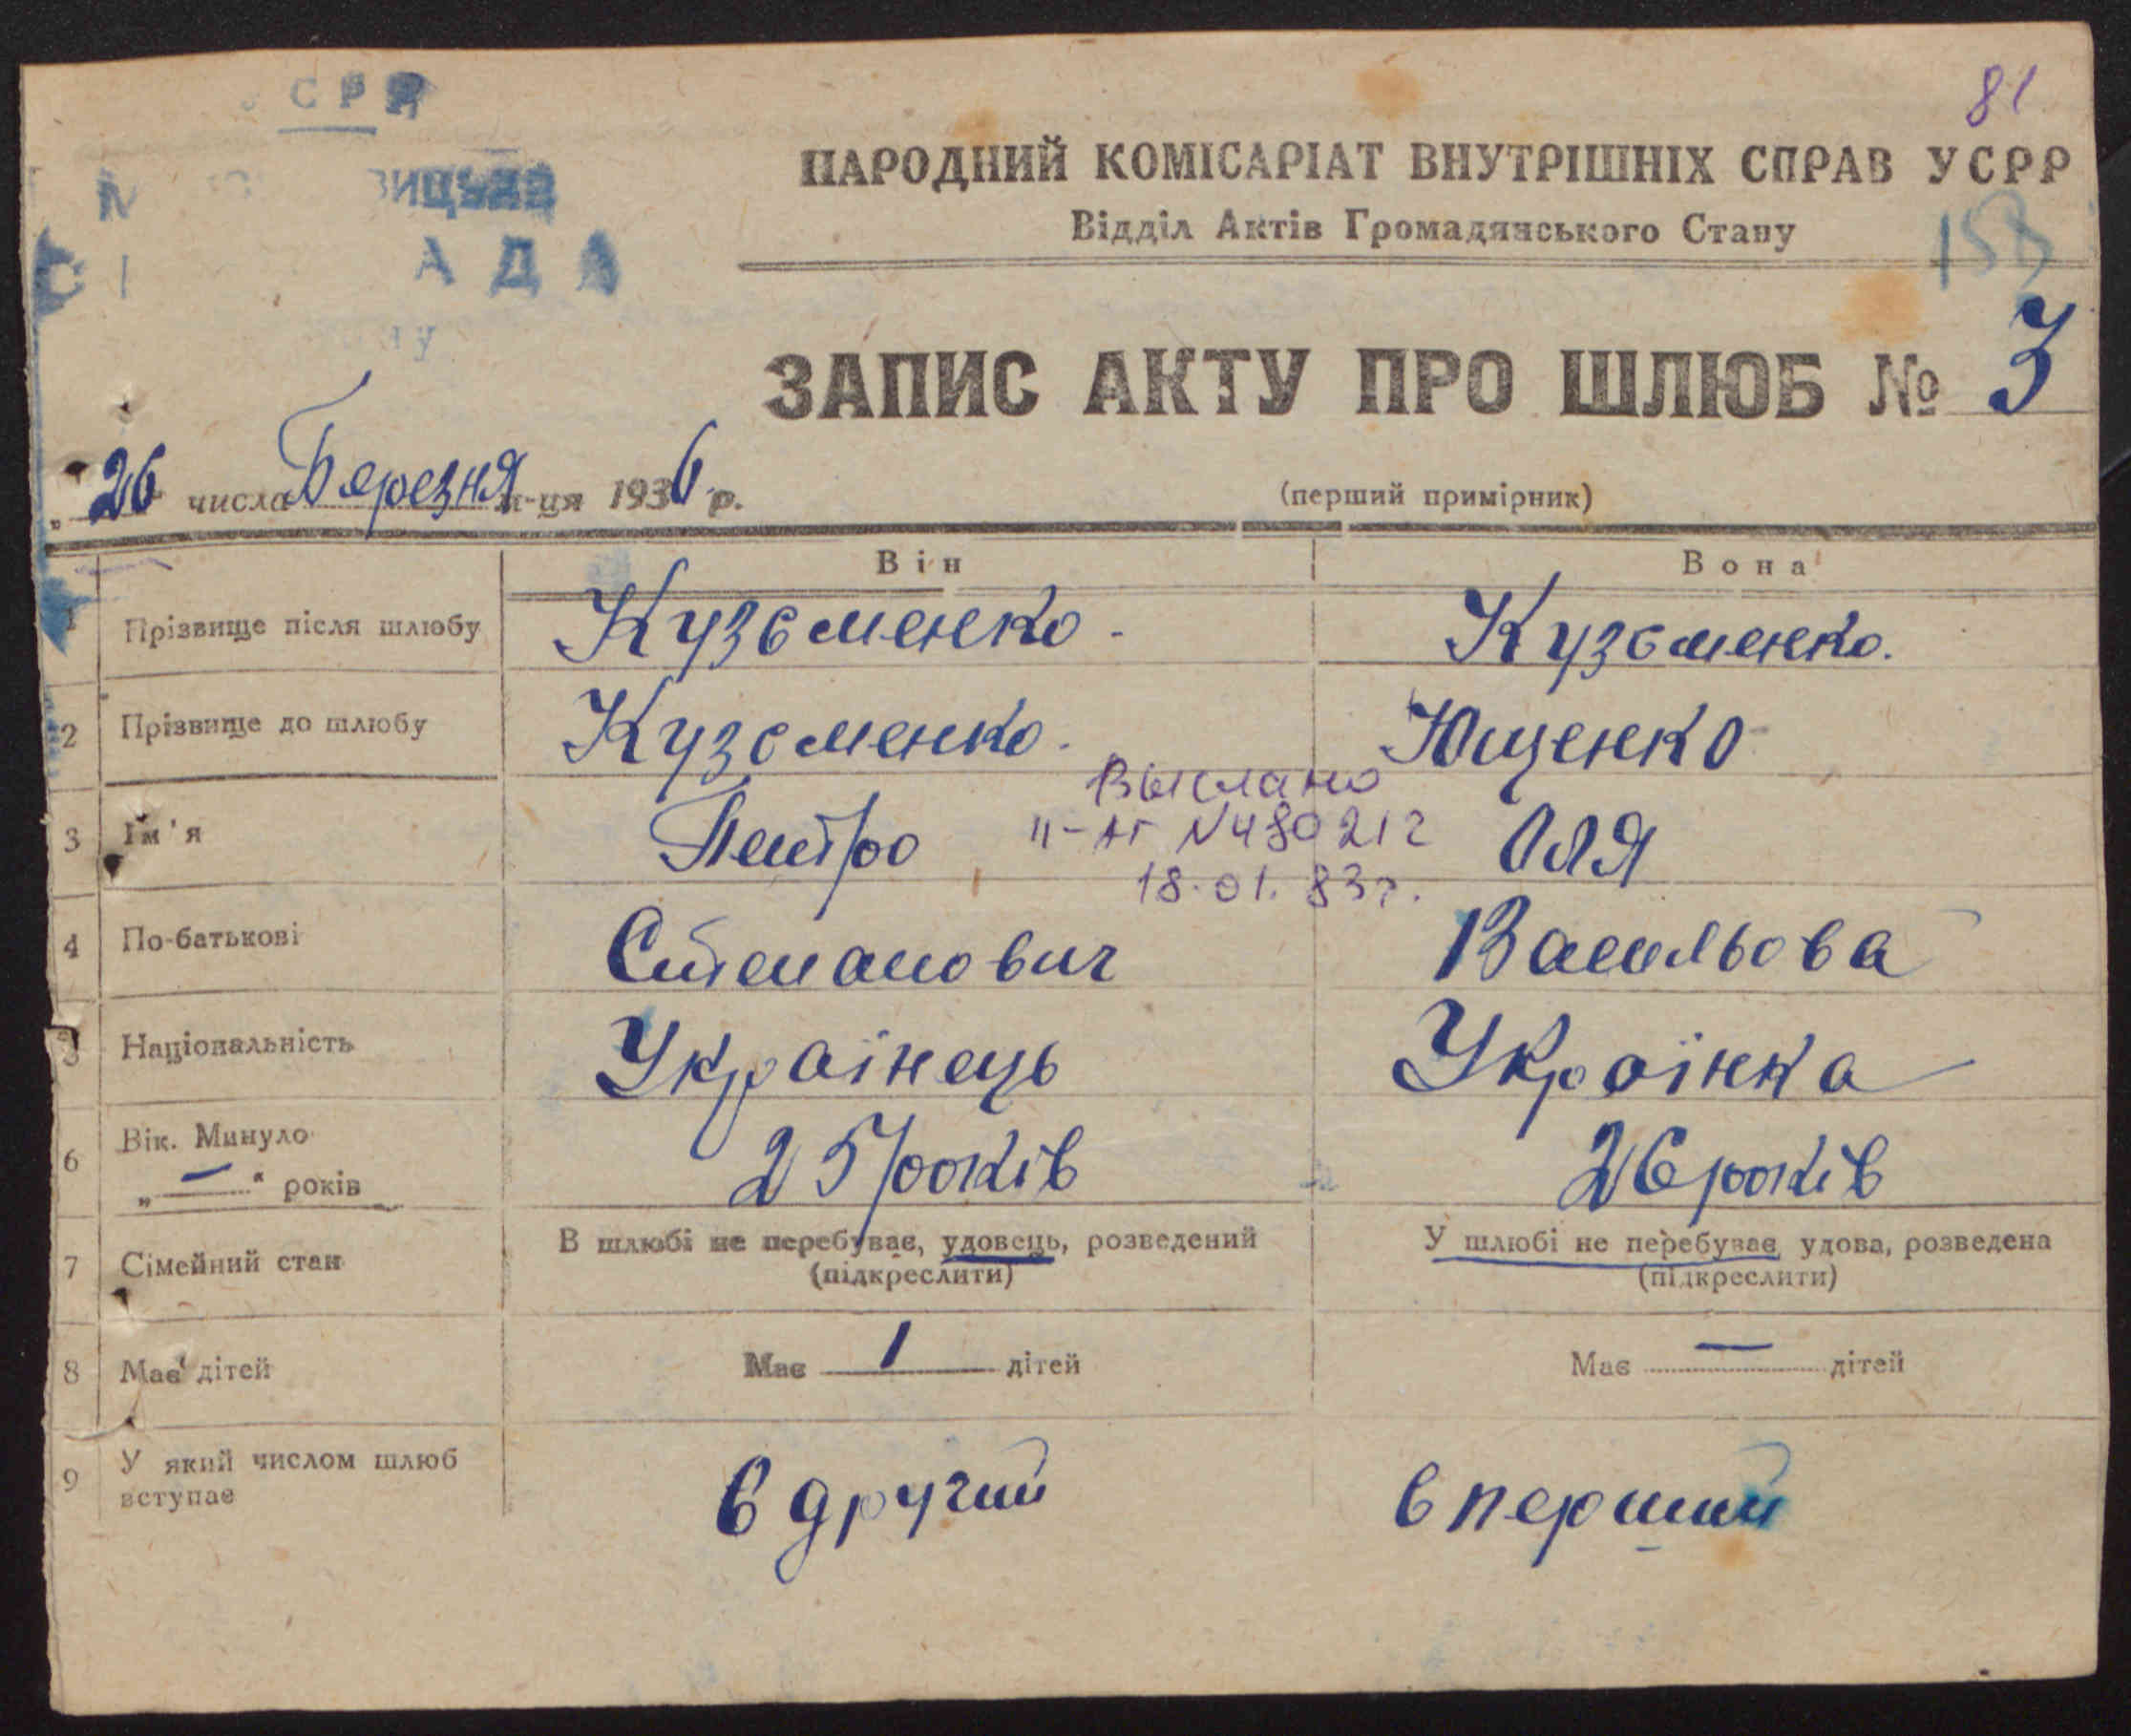 СРР
81
НАРОДНИЙ КОМІСАРІАТ ВНУТРІШНІХ СПРАВ УСРР
Відділ Актів Громадянського Стану
АДА
ЗАПИС АКТУ ПРО ШЛЮБ № 3
„26 числа Березня м-ця 1936 р.
(перший примірник)
Він Вона
1 Прізвище після шлюбу Кузьменко Кузьменко.
2 Прізвище до шлюбу Кузьменко. Ющенко
Выслано
3 Ім'я Петро Оля
II-АГ N480212
18.01.83г.
4 По-батькові Степанович Васильова
5 Національність Українець Українка
6 Вік. Минуло 25 років 26 років
„—“ років
7 Сімейний стан В шлюбі не перебуває, удовець, розведений У шлюбі не перебуває, удова, розведена
(підкреслити) (підкреслити)
8 Має дітей Має 1 дітей Має — дітей
9 У який числом шлюб в другий в перший
вступає